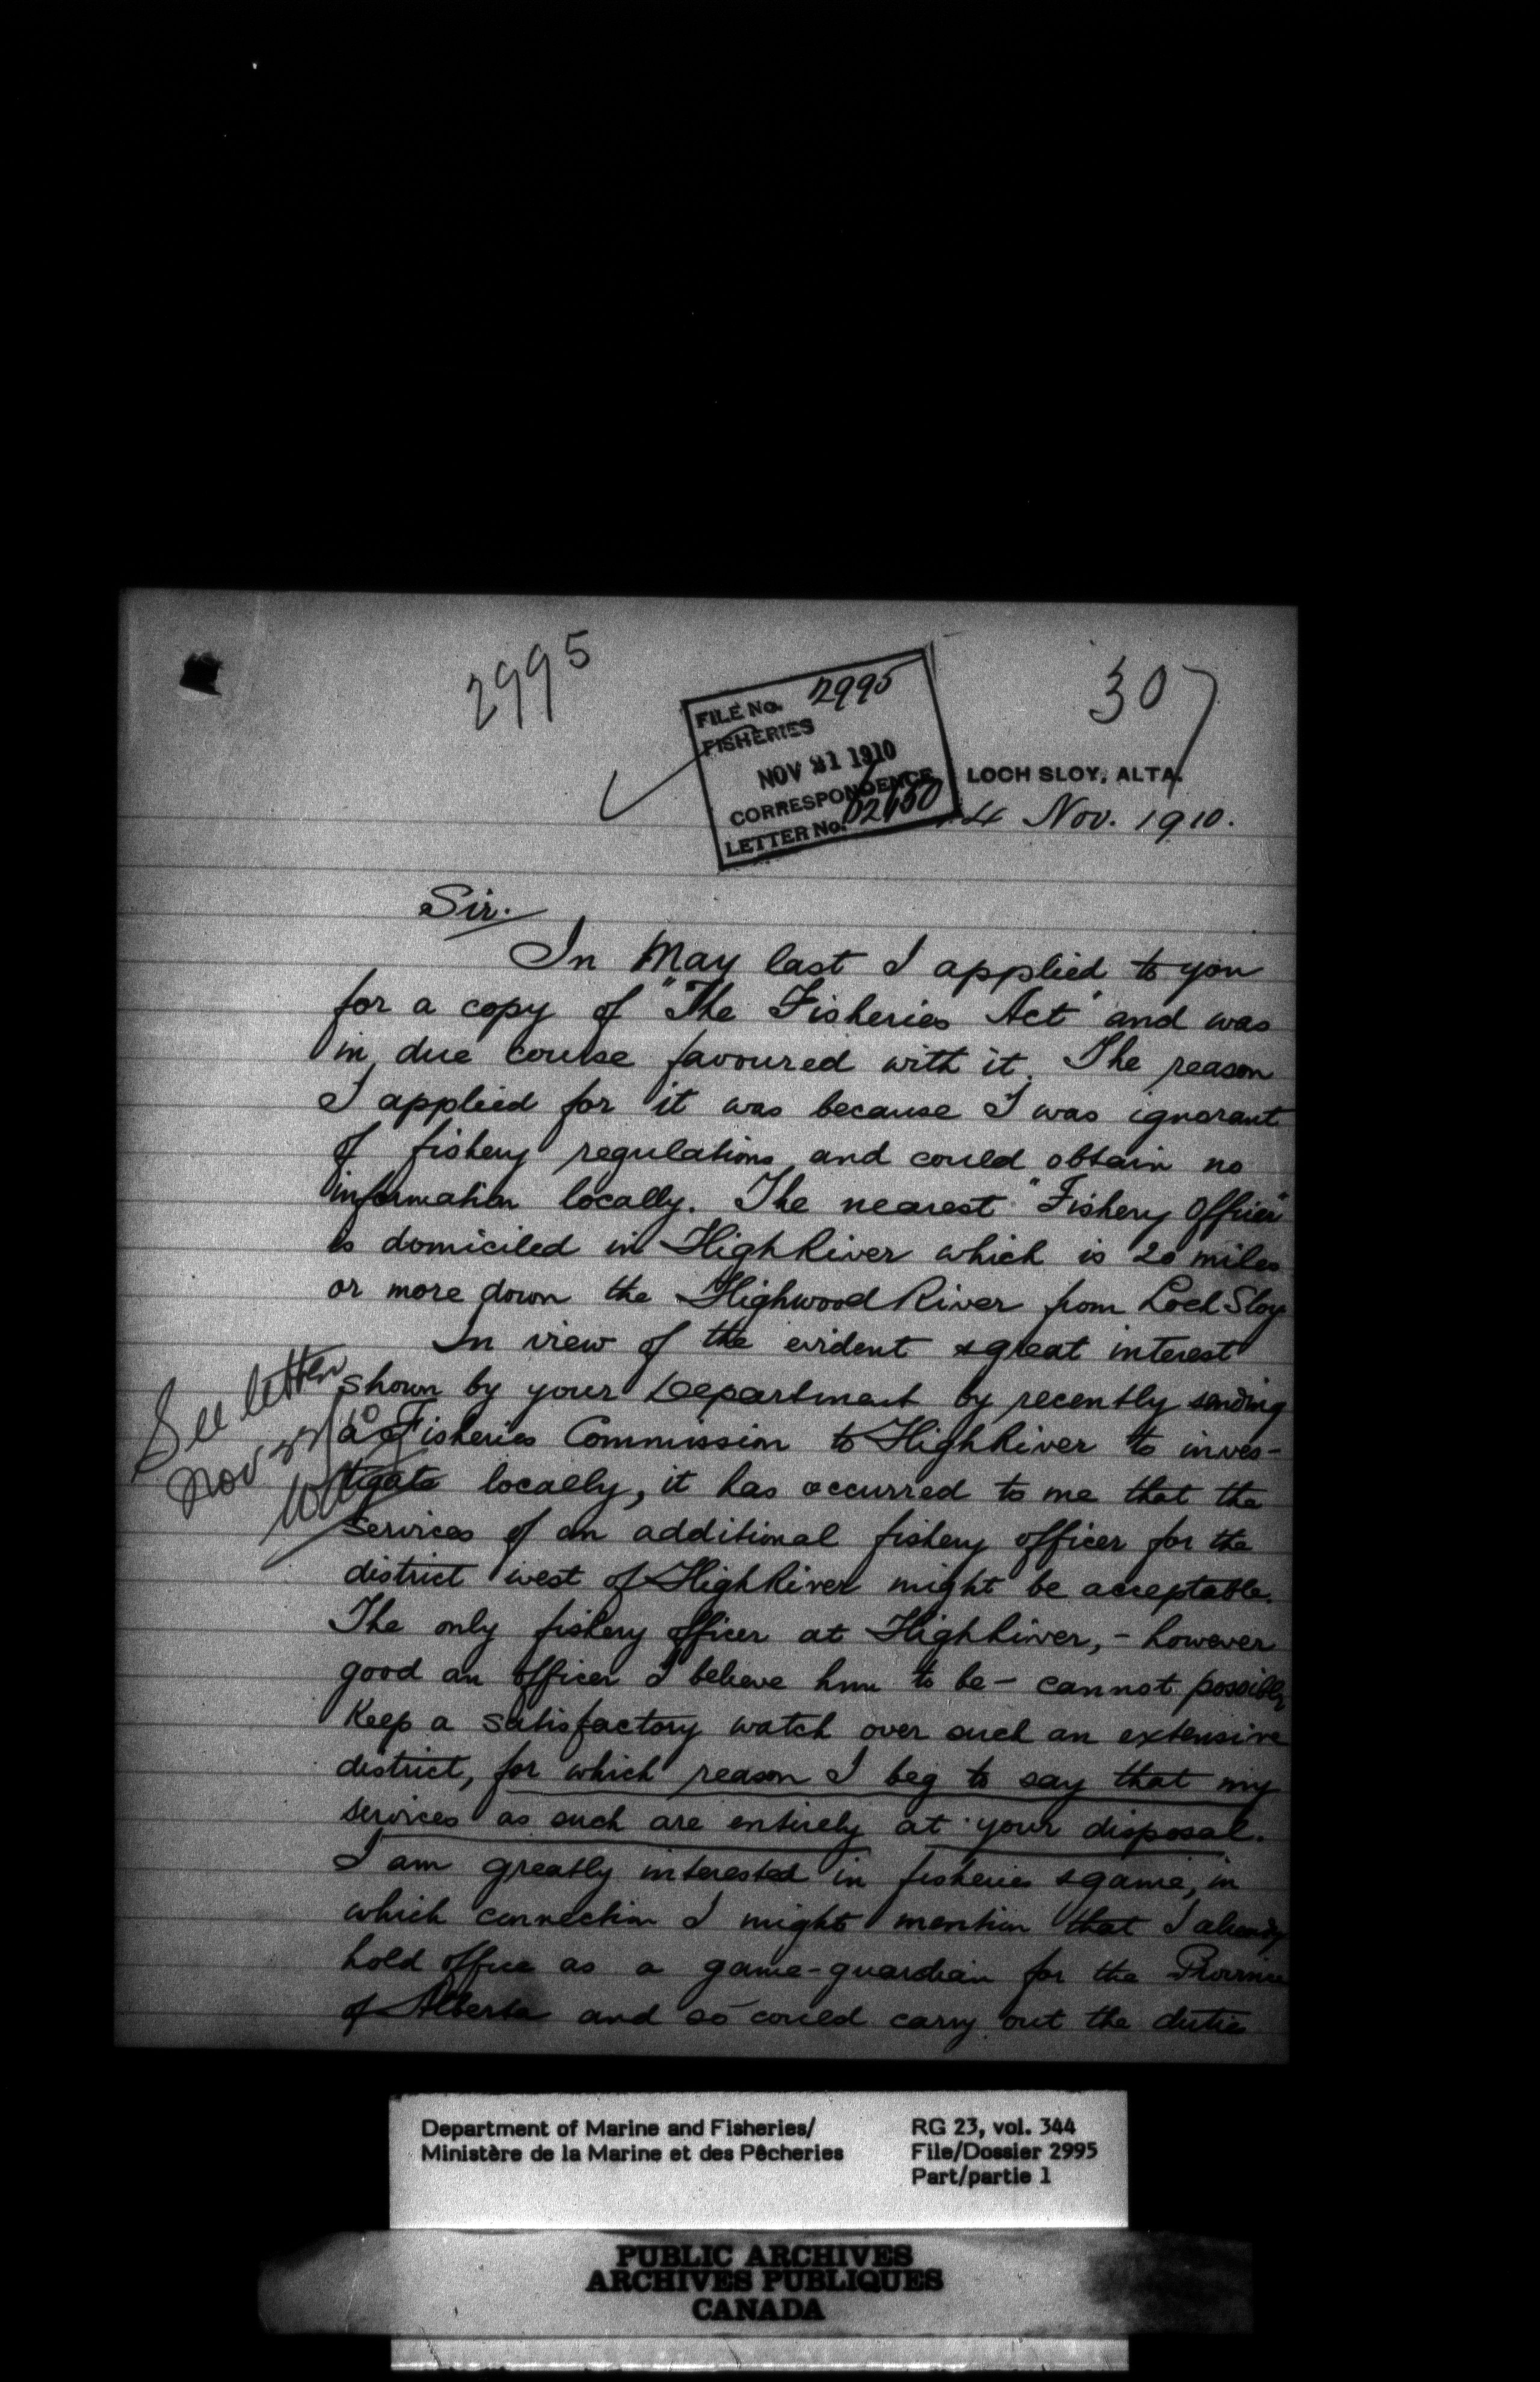 2995
307
FILE No. 2995
FISHERIES
NOV 21 1910
CORRESPONDENCE
LETTER No.
LOCH SLOY, ALTA.
14 Nov. 1910.
Sir.
In May last I applied to you
for a copy of "The Fisheries Act" and was
in due course favoured with it. The reason
I applied for it was because I was ignorant
of fishery regulations and could obtain no
information locally. The nearest "Fishery Officer"
is domiciled in High River which is 20 miles
or more down the Highwood River from Loch Sloy
In view of the evident & great interest
shown by your Department by recently sending
a Fisheries Commission to High River to inves-
tigate locally, it has occurred to me that the
services of an additional fishery officer for the
district west of High River might be acceptable.
The only fishery officer at High River, - however
good an officer I believe him to be - cannot possibly
keep a satisfactory watch over such an extensive
district, for which reason I beg to say that my
services as such are entirely at your disposal.
I am greatly interested in fisheries & game, in
which connection I might mention that I already
hold office as a game-guardian for the Province
of Alberta and so could carry out the duties
See letter
Nov
Department of Marine and Fisheries/
Ministère de la Marine et des Pêcheries
RG 23, vol. 344
File/Dossier 2995
Part/partie 1
PUBLIC ARCHIVES
ARCHIVES PUBLIQUES
CANADA